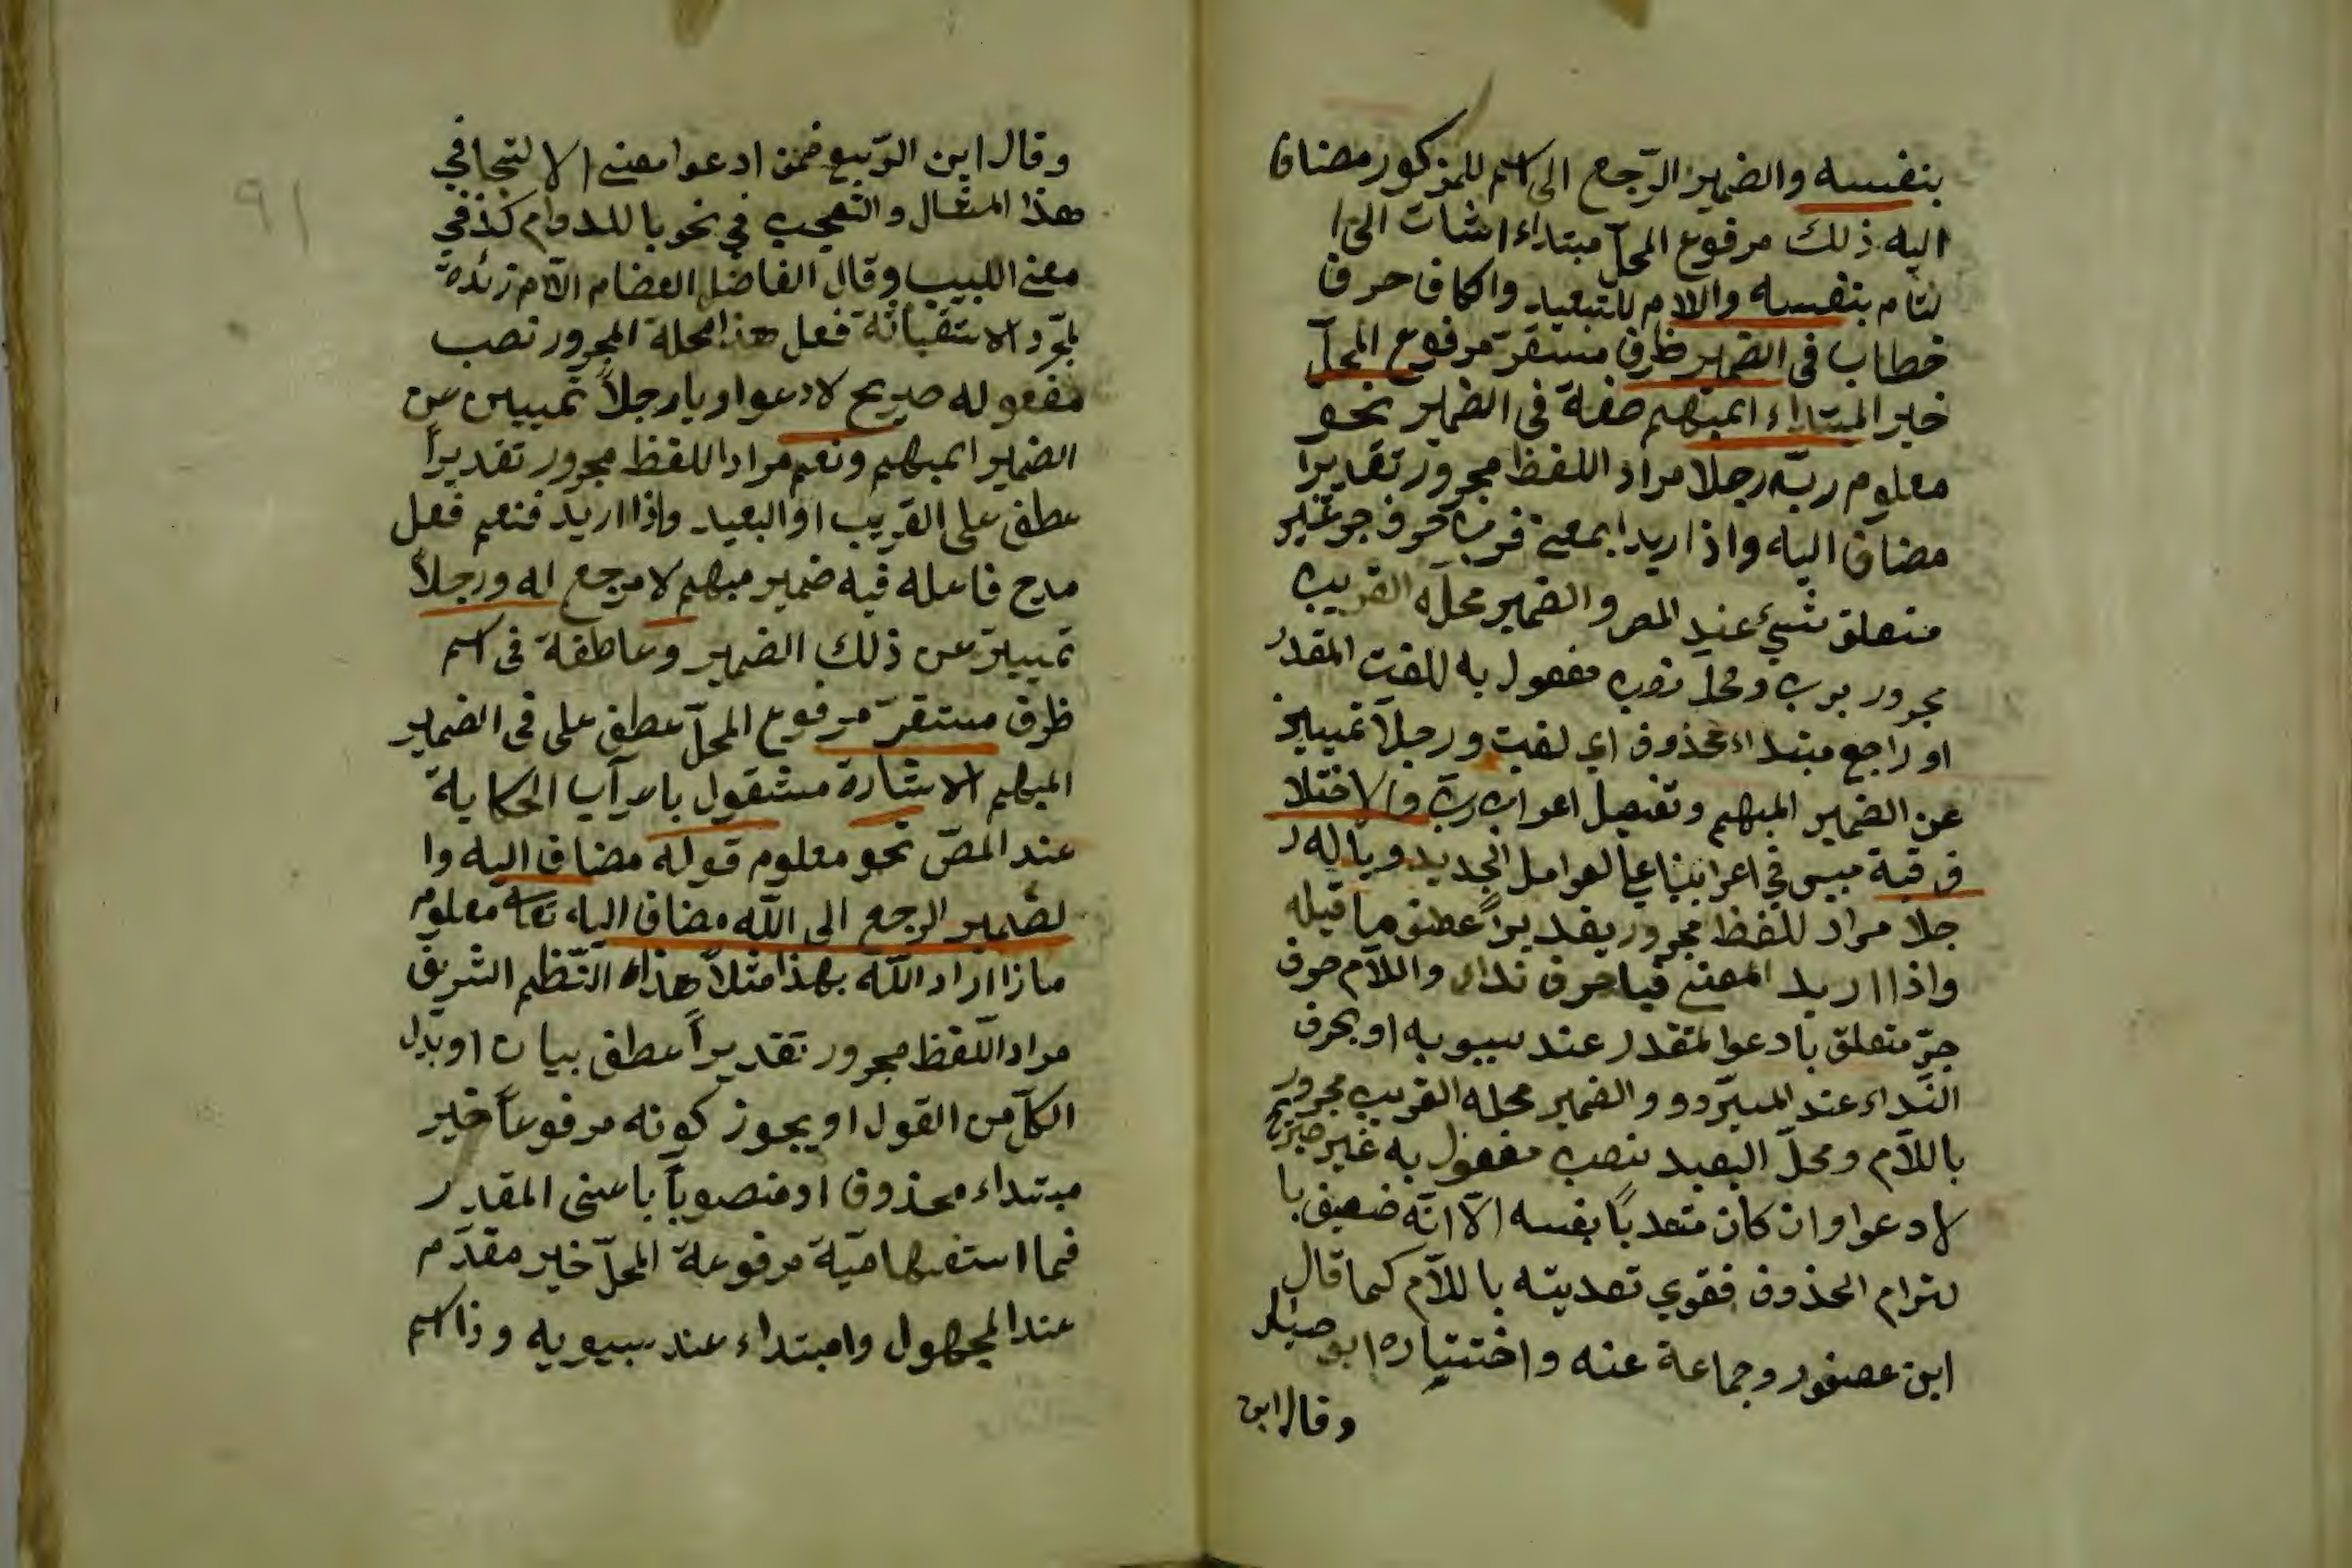 بنفسه والضمير الرّجع الى اسم للمزكور مضاف
اليه ذلك مرفوع المحلّ مبتداء اشات الى ا
لتام بنفسه والام للتبعيد واكاف حرف
خطاب فى الضمير ظرف مستقرّ مرفوع المحلّ
خبر المبتداء المبهم صفة فى الضمير نحو
معلوم ربّه رجلا مراد اللفظ مجرور تقديرا
مضاف اليه واذا اريد ا بمعنى فرب حرف جر غير
متعلق شيئ عند المص والضمير محلّه القريب
مجرور برب ومحلّ نصب مفعول به للقيت المقدر
او راجع مبتداء محذوف اي لقيت ورجلاً تمييز
عن الضمير المبهم وتفصيل اعراب ربّ والاختلا
ف فيه مبيس في اعرابينا على العوامل الجديد ويا له ر
جلا مراد للفظ مجرور يقديراً عطف ما قبله
واذا اريد المعنى فيا حرف نداء واللاّم حرف
جرّ متعلق بادعوا لمقدر عند سيبويه او بحرف
النّداء عند المبرّدو والضمير محله القريب مجرور
باللاّم ومحلّ البعيد نصب مفعول به غير صريح
لادعوا وان كان متعدياً بفسه الاّ انّه ضعيف با
لتزام الحذوف فقوي تعديته باللاّم كما قال
ابن عصفور وجماعة عنه واختياره ابو
وقال ابن
وقال ابن الرّبيع ضمن ادعوا معنى الا لتجا في
هذا المثال والتعجب في نحو يا للدوام كذ في
مغنى اللبيب وقال الفاضل العصام الاّم زئدة
لمجرّد فعل هذا محلة المجرور نصب
مفعوله صريح لادعوا ويا رجلاً تمييس عن
الضمير المبهم ونعم مراد اللفظ مجرور تقديراً
عطف على القريب او البعيد واذا اريد فنعم فعل
مدح فاعله فيه ضمير مبهم لا مرجع له ورجلاً
تمييز عن ذلك الضمير وعاطفة فى اسم
ظرف مستقرّ مرفوع المحلّ عطف على فى الضمير
المبهم الاشارة مشقول باعرآب الحكاية
عند المصّ نحو معلوم قوله مضاف اليه وا
لضمير الرجع الى اللّه مضاف اليه تعا معلوم
مازا اراد اللّه بهذا مثلاً هذاء النّظم الشريف
مراد اللّفظ مجرور تقديراً عطف بيان او بدل
الكلّ من القول او يجوز كونه مرفوعاً خبر
مبتداء محذوف او منصوباً باعنى المقدر
فما استفهاميّة مرفوعة المحلّ خبر مقدّم
عند المجهول وامبتداء عند سيبويه وذا اسم